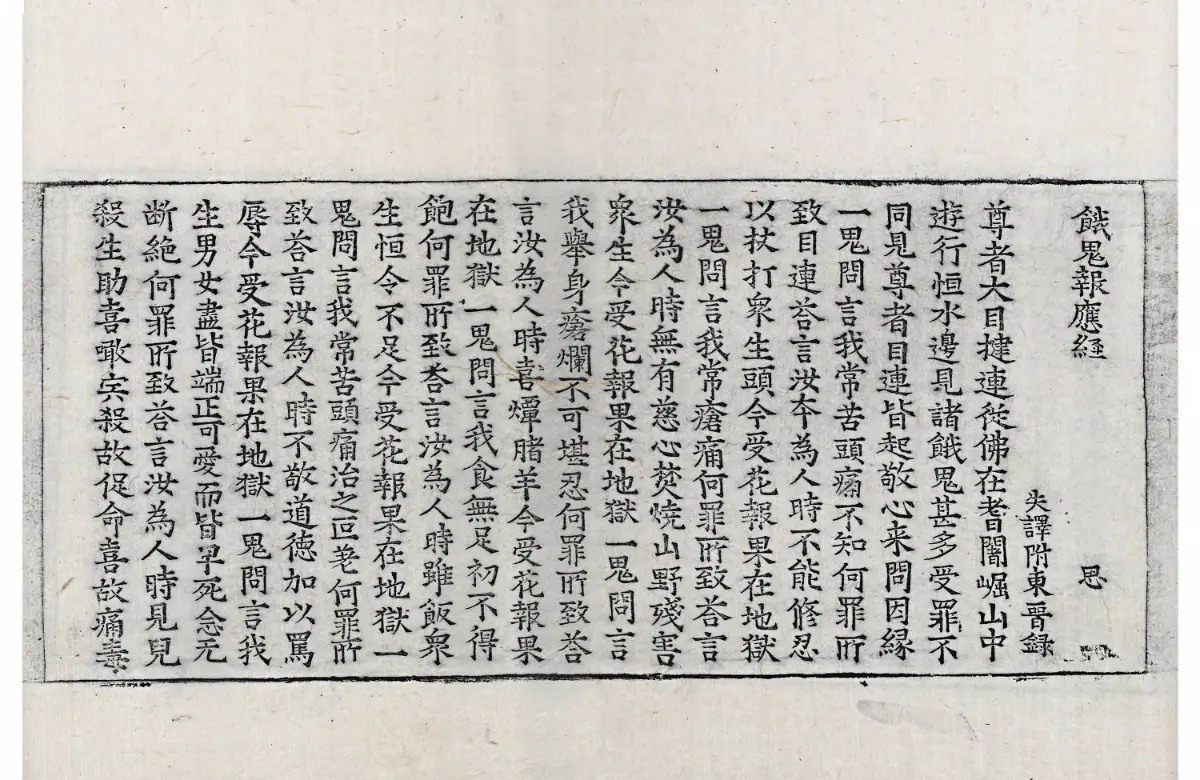 餓鬼報應経 思
失譯附東晉録
尊者大目揵連從佛在耆闍崛山中
遊行恒水邊見諸餓鬼甚多受罪不
同見尊者目連皆起敬心来問因縁
一鬼問言我常苦頭痛不知何罪所
致目連荅言汝本為人時不能修忍
以杖打衆生頭今受花報果在地獄
一鬼問言我常瘡痛何罪所致荅言
汝為人時無有慈心焚燒山野殘害
衆生今受花報果在地獄一鬼問言
我舉身瘡爛不可堪忍何罪所致荅
言汝為人時喜燂羊今受花報果
在地獄一鬼問言我食無足初不得
飽何罪所致荅言汝為人時雖飯衆
生恒令不足今受花報果在地獄一
鬼問言我常苦頭痛治之叵差何罪所
致荅言汝為人時不敬道德加以罵
辱今受花報果在地獄一鬼問言我
生男女盡皆端正可愛而皆早死念之
断絶何罪所致荅言汝為人時見兒
殺生助喜噉宍殺故促命喜故痛毒